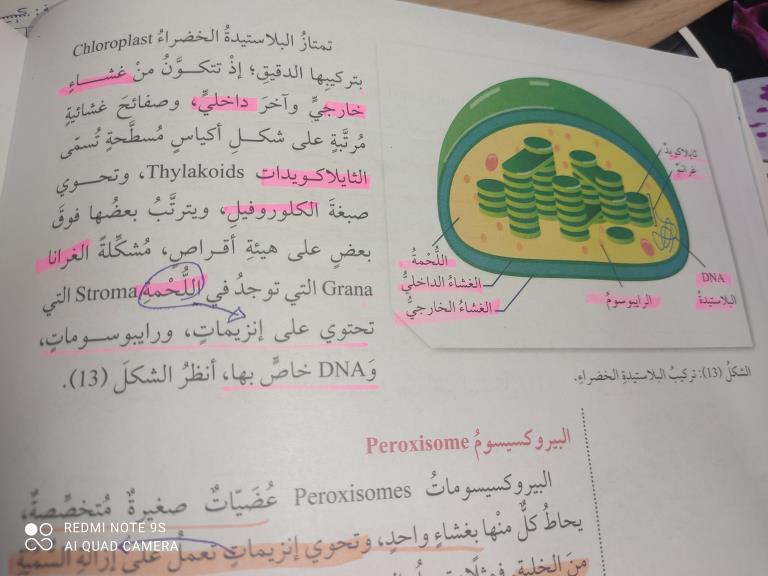 تمتازُ البلاستيدةُ الخضراءُ Chloroplast
بتركيبِها الدقيقِ؛ إذْ تتكوَّنُ منْ غشاءٍ
خارجيٍّ وآخرَ داخليٍّ، وصفائحَ غشائيةٍ
مُرتَّبةٍ على شكلِ أكياسٍ مُسطَّحةٍ تُسمّى
الثايلاكويدات Thylakoids، وتحوي
صبغةَ الكلوروفيلِ، ويترتَّبُ بعضُها فوقَ
بعضٍ على هيئةِ أقراصٍ، مُشكِّلةً الغرانا
Grana التي توجدُ في اللُّحْمةِ Stroma التي
تحتوي على إنزيماتٍ، ورايبوسوماتٍ،
وَDNA خاصٍّ بها، أنظرُ الشكلَ (13).
ثايلاكويدٌ
غرانمٌ
اللُّحْمةُ
الغشاءُ الداخليُّ
الغشاءُ الخارجيُّ
الرايبوسومُ
DNA
البلاستيدةُ
الشكلُ (13): تركيبُ البلاستيدةِ الخضراءِ.
البيروكسيسومُ Peroxisome
البيروكسيسوماتُ Peroxisomes عُضَيّاتٌ صغيرةٌ مُتخصِّصةٌ،
يحاطُ كلٌّ منْها بغشاءٍ واحدٍ، وتحوي إنزيماتٍ تعملُ على إزالةِ السمّيةِ
منَ الخليةِ
REDMI NOTE 9S
AI QUAD CAMERA